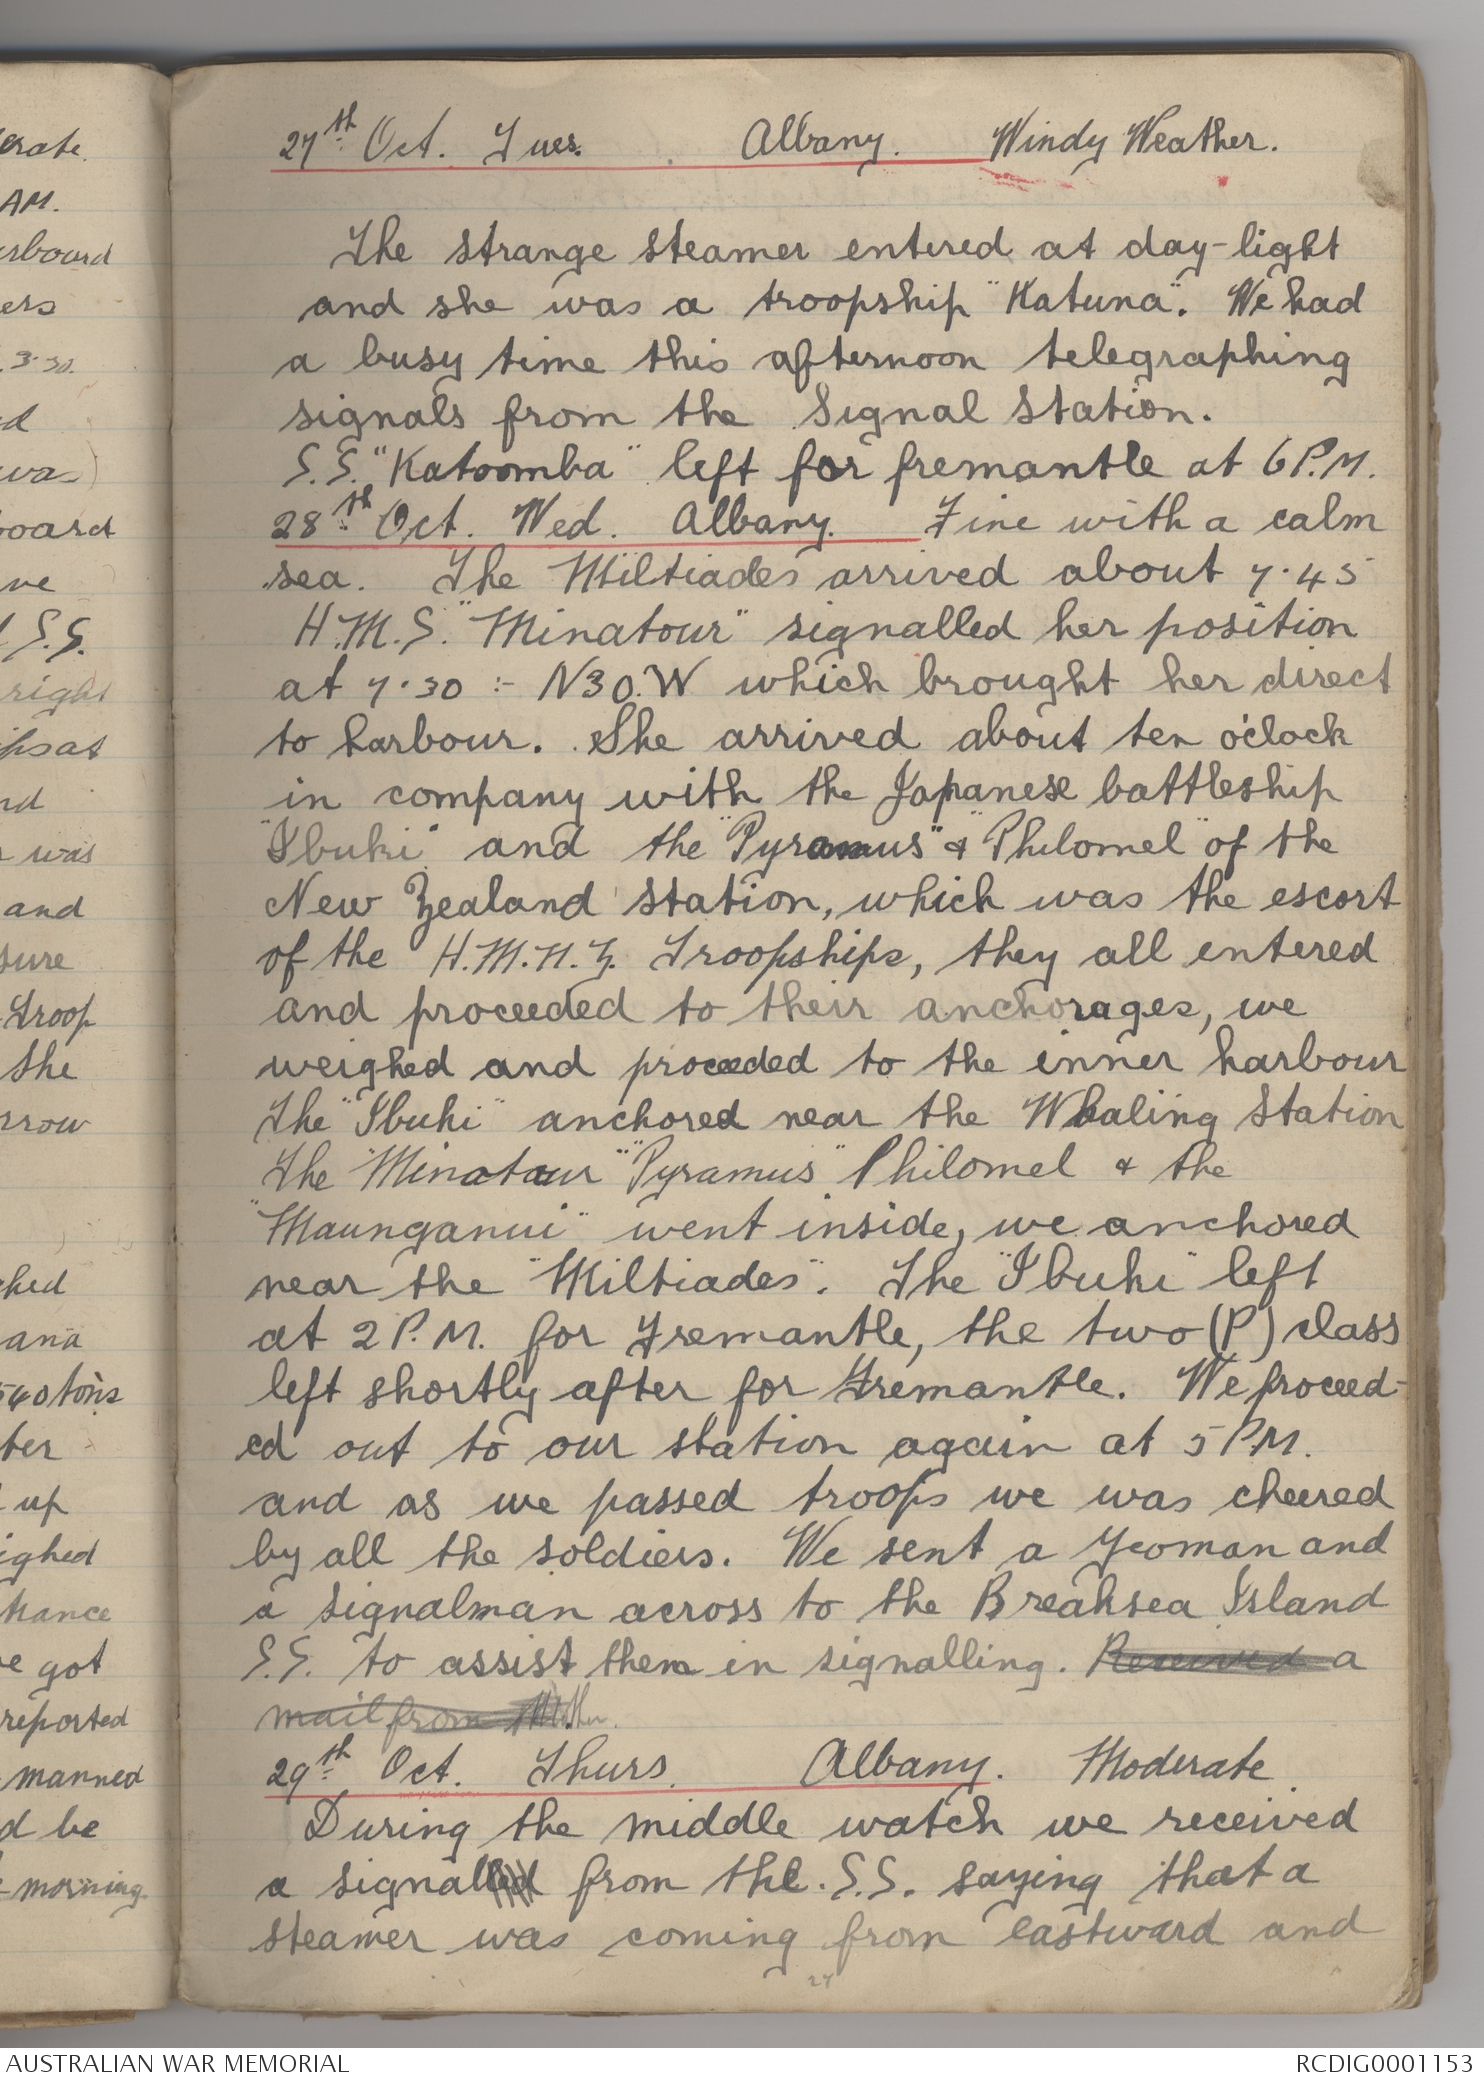 27th Oct. Tues. Albany. Windy Weather.
The strange steamer entered at day-light
and she was a troopship "Katuna". We had
a busy time this afternoon telegraphing
signals from the Signal Station.
S.S. "Katoomba" left for fremantle at 6 P.M.
28th Oct. Wed. Albany. Fine with a calm
sea. The Miltiades arrived about 7.45
H.M.S. "Minatour" signalled her position
at 7.30 :- N30.W which brought her direct
to harbour. She arrived about ten o'clock
in company with the Japanese battleship
"Ibuki" and the "Pyramus" & "Philomel" of the
New Zealand station, which was the escort
of the H.M.N.Z. Troopships, they all entered
and proceeded to their anchorages, we
weighed and proceeded to the inner harbour
The "Ibuki" anchored near the Whaling Station
The "Minataur" "Pyramus" Philomel & the
"Maunganui" went inside, we anchored
near the "Miltiades". The "Ibuki" left
at 2 P.M. for Fremantle, the two (P) class
left shortly after for Fremantle. We proceed-
ed out to our station again at 5 P.M.
and as we passed troops we was cheered
by all the soldiers. We sent a Yeoman and
a signalman across to the Breaksea Island
S.S. to assist them in signalling. Received a
mail from Mother.
29th Oct. Thurs. Albany. Moderate
During the middle watch we received
a signalled from the S.S. saying that a
steamer was coming from eastward and
27
erate.
AM.
rboard
ers
3.30.
d
was)
board
ve
S.S.
right
ips at
nd
was
and
sure
troop
the
rrow
ched
ana
540 tons
ter
up
ighed
trance
e got
reported
manned
d be
morning.
AUSTRALIAN WAR MEMORIAL
RCDIG0001153